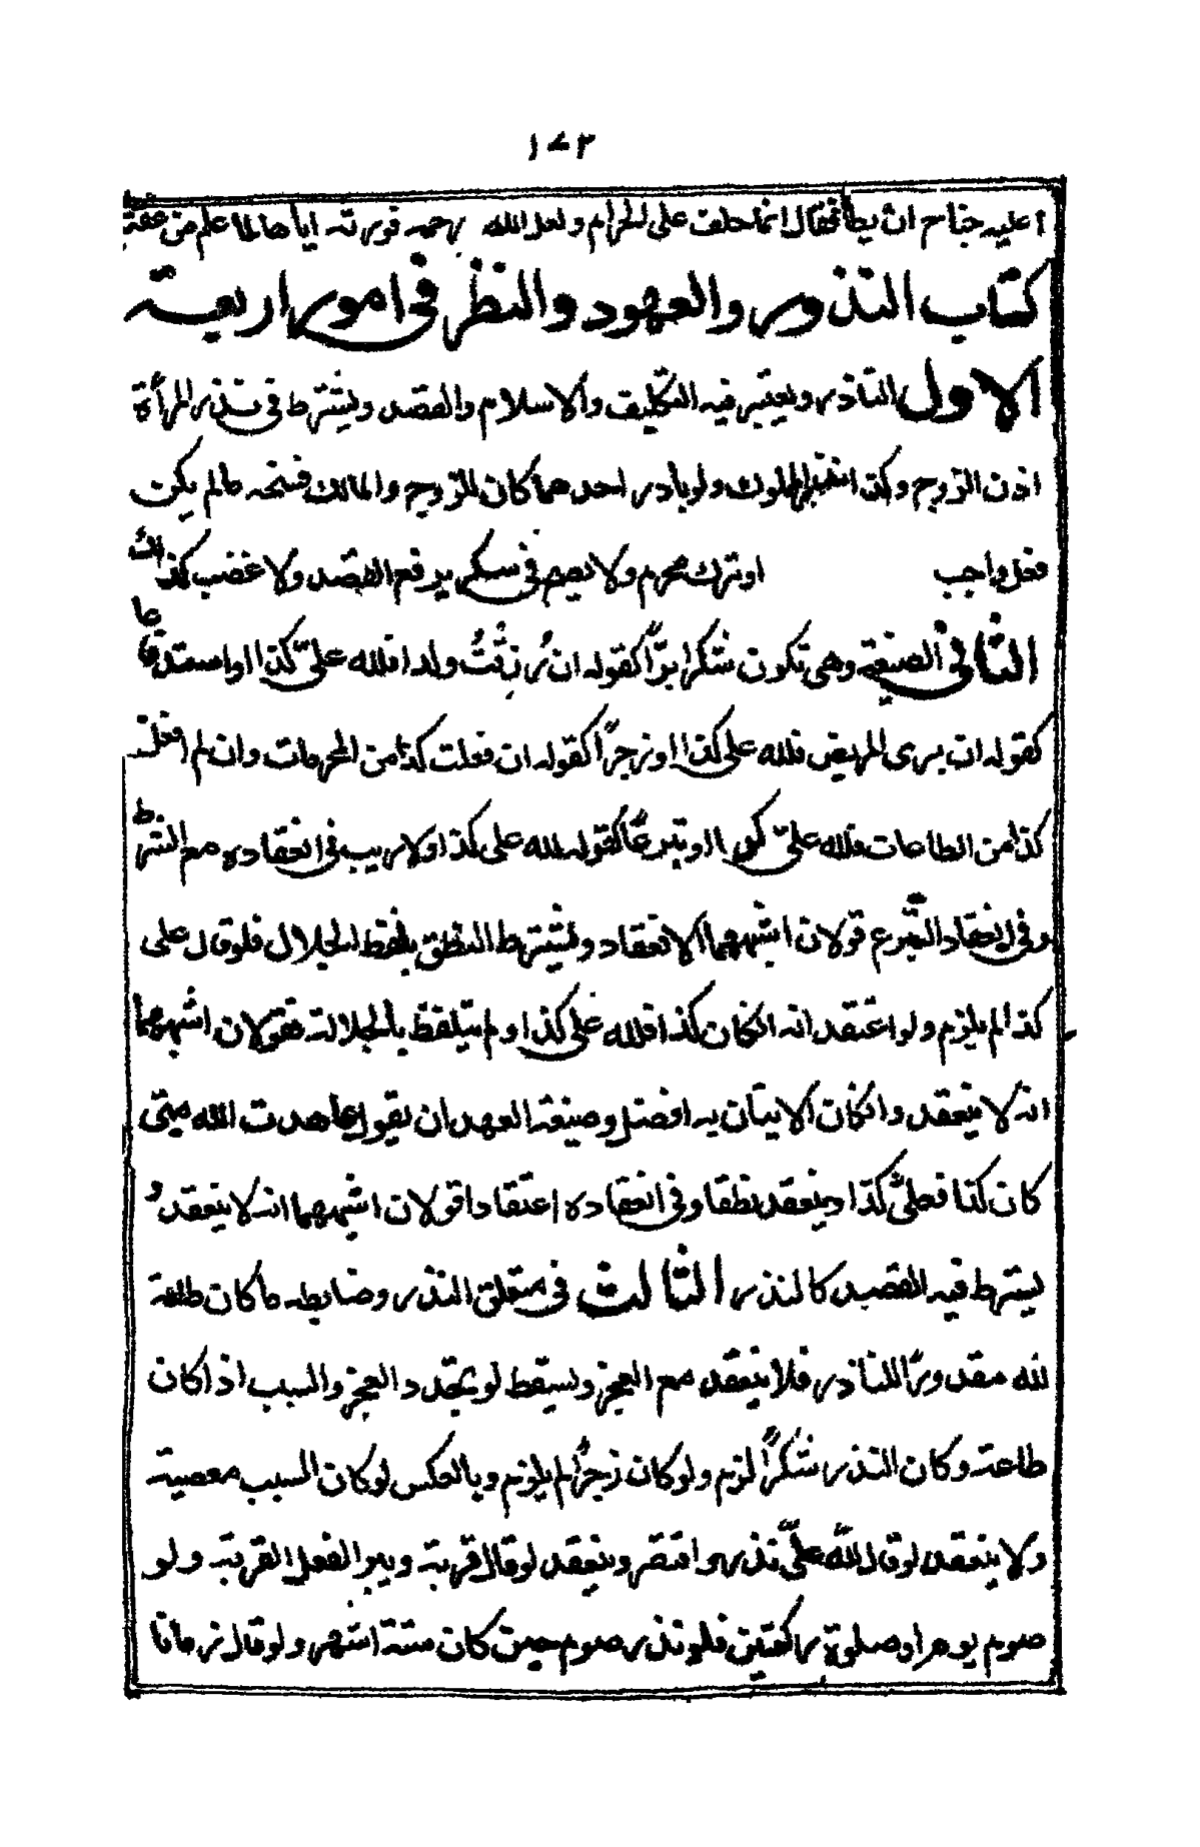 ١٧٢
أعليه جناح ان يطأ فقال انما حلف على الحرام ولعل الله رحمه فورثه اياها لما علم من عفته
كتاب النذور والعهود والنظر في امور اربعة
الاول الناذر ويعتبر فيه التكليف والاسلام والقصد ويشترط في نذر المرأة
اذن الزوج وكذا المملوك ولو بادر احدهما كان للزوج والمالك فسخه مالم يكن
فعل واجب او ترك محرم ولا يصح في سكر يرفع القصد ولا غضب كذلك
الثاني الصيغة وهي تكون شكرا برّاً كقوله ان رُزِقْتُ ولدا فلله عليّ كذا او استدفاعا
كقوله ان برى المريض فلله على كذا او زجراً كقوله ان فعلت كذا من المحرمات وان لم افعل
كذا من الطاعات فلله عليّ كذا او تبرعًا كقوله لله على كذا ولا ريب في انعقاده مع الشرط
وفي انعقاد التبرع قولان اشبههما الانعقاد ويشترط النطق بلفظ الجلال فلو قال على
كذا لم يلزم ولو اعتقد انه انكان كذا فلله على كذا ولم يتلفظ بالجلالة فقولان اشبههما
انه لا ينعقد وانكان الاتيان به افضل وصيغة العهد ان يقول عاهدت الله متى
كان كذا فعليّ كذا وينعقد نطقا وفي انعقاده اعتقادا قولان اشبههما انه لا ينعقد و
يشترط فيه القصد كالنذر الثالث في متعلق النذر وضابطه ماكان طاعة
لله مقدورًا للناذر فلا ينعقد مع العجز ويسقط لو تجدد العجز والسبب اذا كان
طاعة وكان النذر شكرًا لزم ولو كان زجرًا لم يلزم وبالعكس لو كان السبب معصية
ولا ينعقد لو قال للّٰه عليّ نذر واقتصر وينعقد لو قال قربة ويبر الفعل القربة ولو
صوم يوم او صلوة ركعتين فلو نذر صوم حين كان ستة اشهر ولو قال زمانا